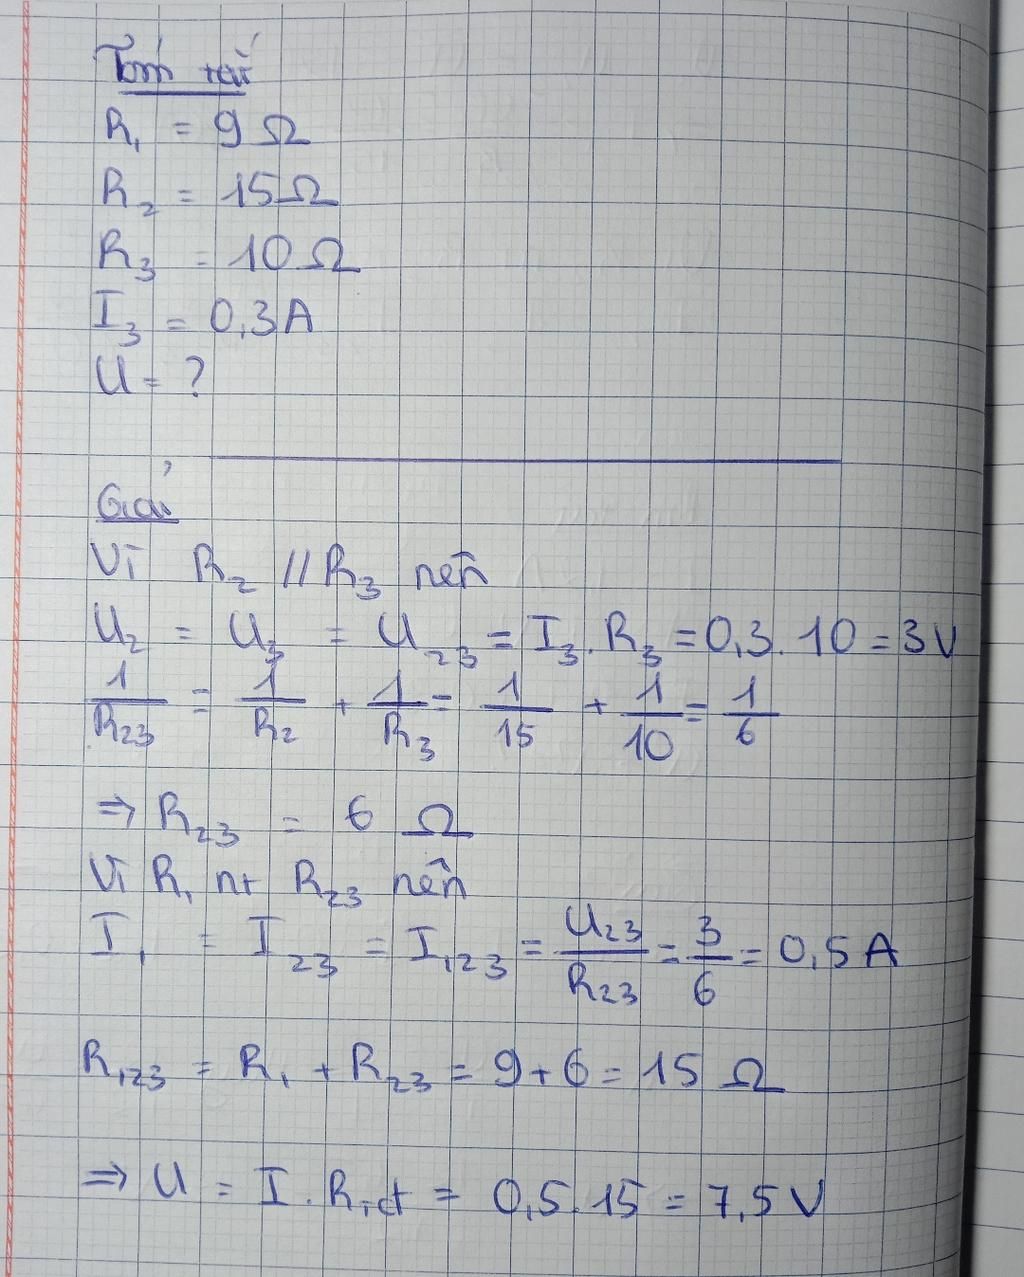 Tóm tắt
R₁ = 9 Ω
R₂ = 15 Ω
R₃ = 10 Ω
I₃ = 0,3 A
U = ?
Giải
Vì R₂ // R₃ nên
U₂ = U₃ = U₂₃ = I₃. R₃ = 0,3. 10 = 3 V
1/R₂₃ = 1/R₂ + 1/R₃ = 1/15 + 1/10 = 1/6
⇒ R₂₃ = 6 Ω
Vì R₁ nt R₂₃ nên
I₁ = I₂₃ = I₁₂₃ = U₂₃/R₂₃ = 3/6 = 0,5 A
R₁₂₃ = R₁ + R₂₃ = 9 + 6 = 15 Ω
⇒ U = I . Rtđ = 0,5. 15 = 7,5 V